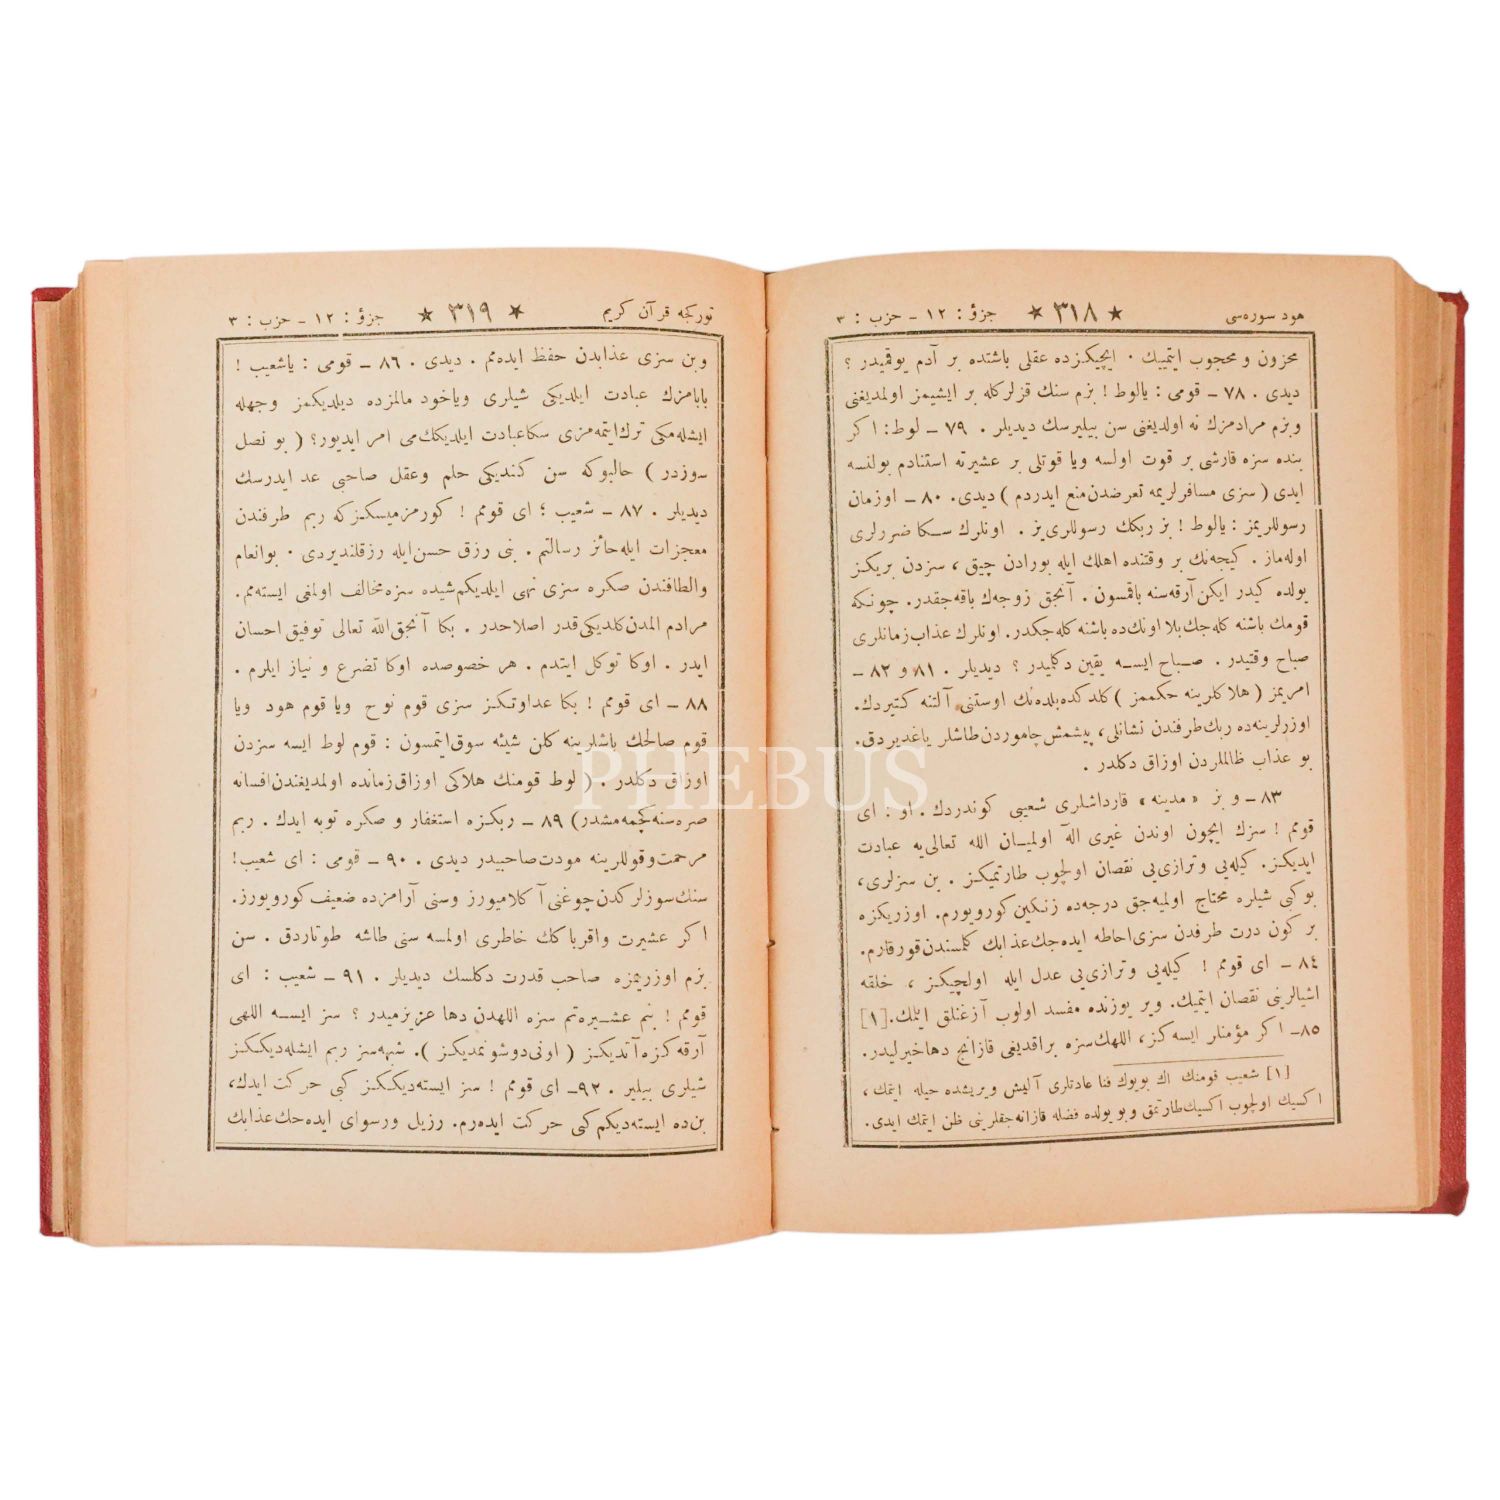 هود سوره‌سی ★ ٣١٨ ★ جزؤ : ١٢ ـ حزب : ٣
محزون و محجوب ایتمییك . ایچیكزده عقلی باشنده بر آدم یوقمیدر ؟
دیدی . ٧٨ ـ قومی : یالوط ! بزم سنك قزلركله بر ایشیمز اولمدیغنی
وبزم مرادمزك نه اولدیغنی سن بیلیرسك دیدیلر . ٧٩ ـ لوط : اكر
بنده سزه قارشی بر قوت اولسه ویا قوتلی بر عشیرته استنادم بولنسه
ایدی ( سزی مسافرلریمه تعرضدن منع ایدردم ) دیدی . ٨٠ ـ اوزمان
رسوللریمز : یالوط ! بز ربكك رسوللری یز . اونلرك سكا ضررلری
اوله‌ماز . كیجه‌نك بر وقتنده اهلك ایله بورادن چیق ، سزدن بریكز
یولده كیدر ایكن آرقه‌سنه باقمسون . آنجق زوجه‌ك باقه‌جقدر . چونكه
قومك باشنه كله‌جك بلا اونك‌ده باشنه كله‌جكدر . اونلرك عذاب زمانلری
صباح وقتیدر . صباح ایسه یقین دكلمیدر ؟ دیدیلر . ٨١ و ٨٢ ـ
امریمز ( هلاكلرینه حكممز ) كلدكده بلده‌نك اوستنی آلتنه كتیردك .
اوزرلرینه‌ده ربك طرفندن نشانلی ، پیشمش چاموردن طاشلر یاغدیردق .
بو عذاب ظالملردن اوزاق دكلدر .
٨٣ ـ و بز « مدینه » قارداشلری شعیبی كوندردك . او : ای
قومم ! سزك ایچون اوندن غیری اله اولمیان الله تعالی‌یه عبادت
ایدیكز . كیله‌یی وترازی‌یی نقصان اولچوب طارتمیكز . بن سزلری ،
بوكبی شیلره محتاج اولمیه‌جق درجه‌ده زنكین كورویورم . اوزریكزه
بر كون درت طرفدن سزی احاطه ایده‌جك عذابك كلمسندن قورقارم .
٨٤ ـ ای قومم ! كیله‌یی وترازی‌یی عدل ایله اولچیكز ، خلقه
اشیالرینی نقصان ایتمیك . ویر یوزنده مفسد اولوب آزغنلق ایتمك . [١]
٨٥ـ اكر مؤمنلر ایسه‌كز ، اللهك سزه براقدیغی قازانج دها خیرلیدر .
[١] شعیب قومنك اك بویوك فنا عادتلری آلیش ویریشده حیله ایتمك ،
اكسیك اولچوب اكسیك طارتمق وبو یولده فضله قازانه‌جقلرینی ظن ایتمك ایدی .
توركجه قرآن كریم ★ ٣١٩ ★ جزؤ : ١٢ ـ حزب : ٣
وبن سزی عذابدن حفظ ایده‌مم . دیدی . ٨٦ ـ قومی : یاشعیب !
بابامزك عبادت ایلدیكی شیلری ویاخود مالمزده دیلدیكمز وجهله
ایشله‌مكی ترك ایتمه‌مزی سكا عبادت ایلدیكك‌می امر ایدیور ؟ ( بو نصل
سوزدر ) حالبوكه سن كندیكی حلم وعقل صاحبی عد ایدرسك
دیدیلر . ٨٧ ـ شعیب ؛ ای قومم ! كورمزمیسكزكه ربم طرفندن
معجزات ایله حائز رسالتم . بنی رزق حسن ایله رزقلندیردی . بوانعام
والطافندن صكره سزی نهی ایلدیكم شیده سزه مخالف اولمغی ایسته‌مم .
مرادم المدن كلدیكی قدر اصلاحدر . بكا آنجق الله تعالی توفیق احسان
ایدر . اوكا توكل ایتدم . هر خصوصده اوكا تضرع و نیاز ایلرم .
٨٨ ـ ای قومم ! بكا عداوتكز سزی قوم نوح ویا قوم هود ویا
قوم صالحك باشلرینه كلن شیئه سوق ایتمسون : قوم لوط ایسه سزدن
اوزاق دكلدر . ( لوط قومنك هلاكی اوزاق زمانده اولمدیغندن افسانه
صره‌سنه كچمه‌مشدر ) ٨٩ ـ ربكزه استغفار و صكره توبه ایدك . ربم
مرحمت وقوللرینه مودت صاحبیدر دیدی . ٩٠ ـ قومی : ای شعیب !
سنك سوزلركدن چوغنی آكلامیورز وسنی آرامزده ضعیف كورویورز .
اكر عشیرت واقرباكك خاطری اولمسه سنی طاشه طوتاردق . سن
بزم اوزریمزه صاحب قدرت دكلسك دیدیلر . ٩١ ـ شعیب : ای
قومم ! بنم عشیره‌تم سزه اللهدن دها عزیزمیدر ؟ سز ایسه اللهی
آرقه‌كزه آتدیكز ( اونی دوشونمدیكز ) . شبهه‌سز ربم ایشله‌دیككز
شیلری بیلیر . ٩٢ـ ای قومم ! سز ایسته‌دیككز كبی حركت ایدك ،
بن‌ده ایسته‌دیكم كبی حركت ایده‌رم . رزیل ورسوای ایده‌جك عذابك
PHEBUS